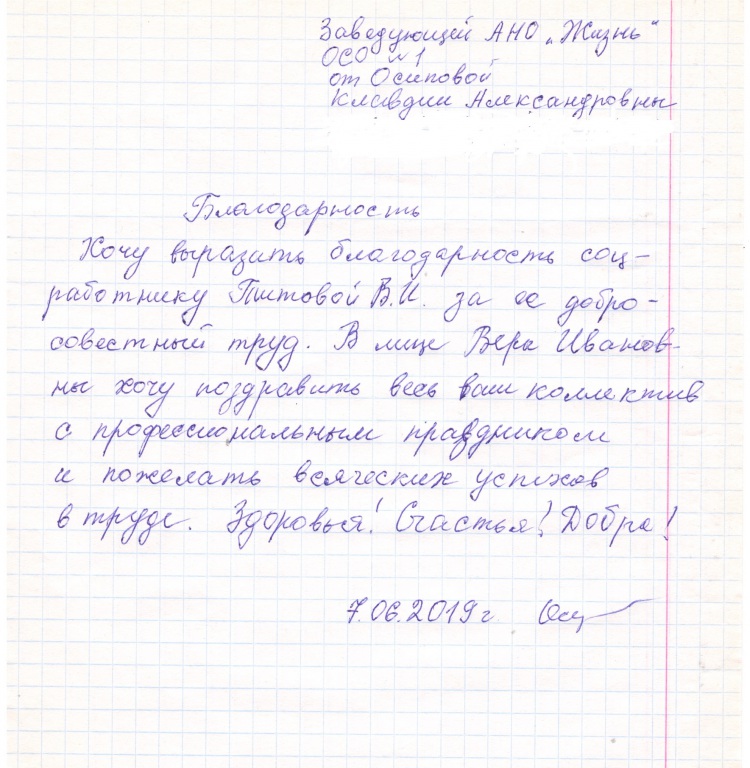 Заведующей АНО „Жизнь"
ОСО №1
от Осиповой
Клавдии Александровны
Благодарность
Хочу выразить благодарность соц-
работнику Титовой В.И. за ее добро-
совестный труд. В лице Веры Иванов-
ны хочу поздравить весь ваш коллектив
с профессиональным праздником
и пожелать всяческих успехов
в труде. Здоровья! Счастья! Добра!
7.06.2019г